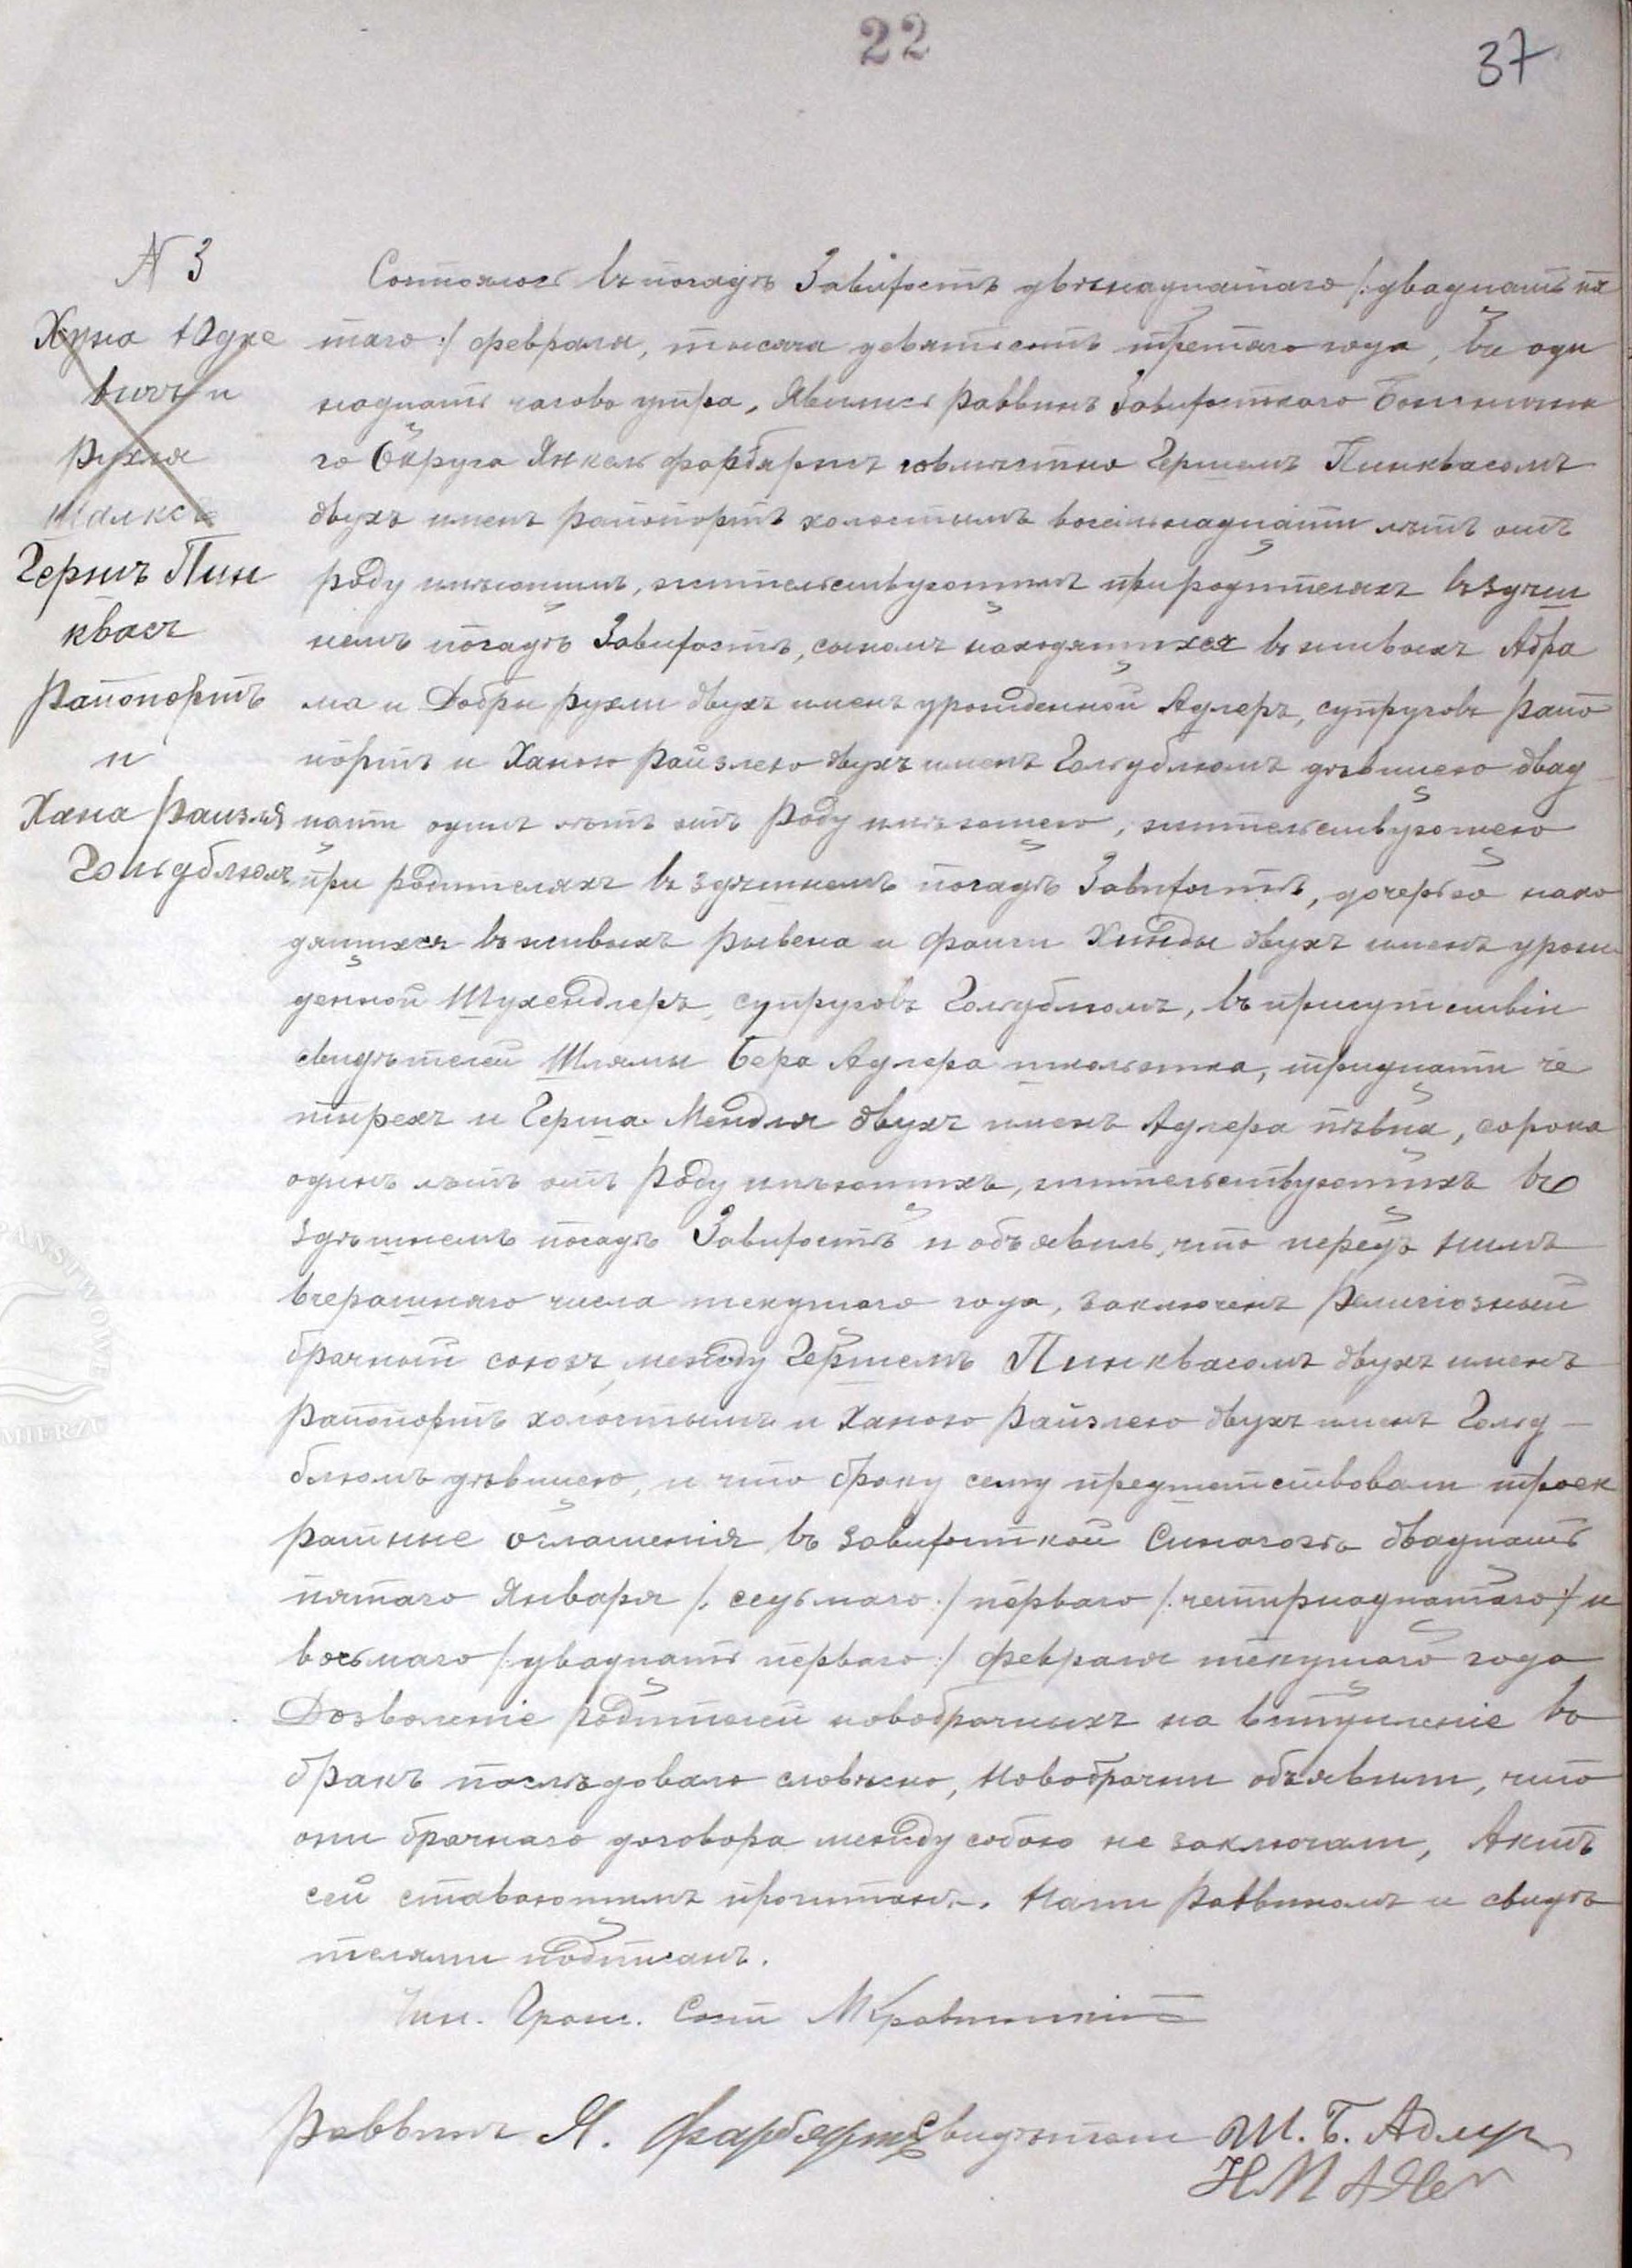 22
37
N 3
Хуна Юдке
вичъ и
Рухля
Гершъ Пин
квасъ
Рапопортъ
и
Хана Раизля
Гольдблюмъ
Состоялось въ посадѣ Завихостъ двѣнадцатаго /:двадцать пя
таго:/ февраля, тысяча девятьсотъ третьяго года, въ оди
надцать часовъ утра, Явился Раввинъ Завихостскаго Божнична
го Округа Янкель Фарбяржъ совмѣстно Гершемъ Пинквасомъ
двухъ именъ Рапопортъ холостымъ восемьнадцати лѣтъ отъ
роду имѣющимъ, жительствующимъ при родителяхъ въ здѣш
немъ посадѣ Завихостъ, сыномъ находящихся въ живыхъ Абра
ма и Добры Рухли двухъ именъ урожденной Адлеръ, супруговъ Рапо
портъ и Ханою Райзлею двухъ именъ Гольдблюмъ дѣвицею двад
цати одинъ лѣтъ отъ роду имѣющею, жительствующею
при родителяхъ въ здѣшнемъ посадѣ Завихостъ, дочерью нахо
дящихся въ живыхъ Рывена и Фаиги Хинды двухъ именъ урож
денной Шухендлеръ, супруговъ Гольдблюмъ, въ присутствіи
свидѣтелей Шлямы Бера Адлера школьника, тридцати че
тырехъ и Герша Мендля двухъ именъ Адлера пѣвца, сорока
одинъ лѣтъ отъ роду имѣющихъ, жительствующихъ въ
здѣшнемъ посадѣ Завихостъ и объявилъ, что передъ нимъ
вчерашняго числа текущаго года, заключенъ Религіозный
брачный союзъ между Гершемъ Пинквасомъ двухъ именъ
Рапопортъ холостымъ и Ханою Райзлею двухъ именъ Гольд
блюмъ дѣвицею, и что браку сему предшествовали троек
ратные оглашенія въ Завихостской Синагогѣ двадцать
пятаго Января /:седьмаго:/ перваго /:четырнадцатаго:/ и
восьмаго /:двадцать перваго:/ февраля текущаго года
Дозволеніе родителей новобрачныхъ на вступленіе въ
бракъ послѣдовало словѣсно, Новобрачни объявили, что
они брачнаго договора между собою не заключали, Актъ
сей ставающимъ прочитанъ. Нами Раввиномъ и свидѣ
телями подписанъ.
Чин. Граж. Сост
Раввинъ Я. Фарбяржъ Свидѣтели Ш. Б. Адлер